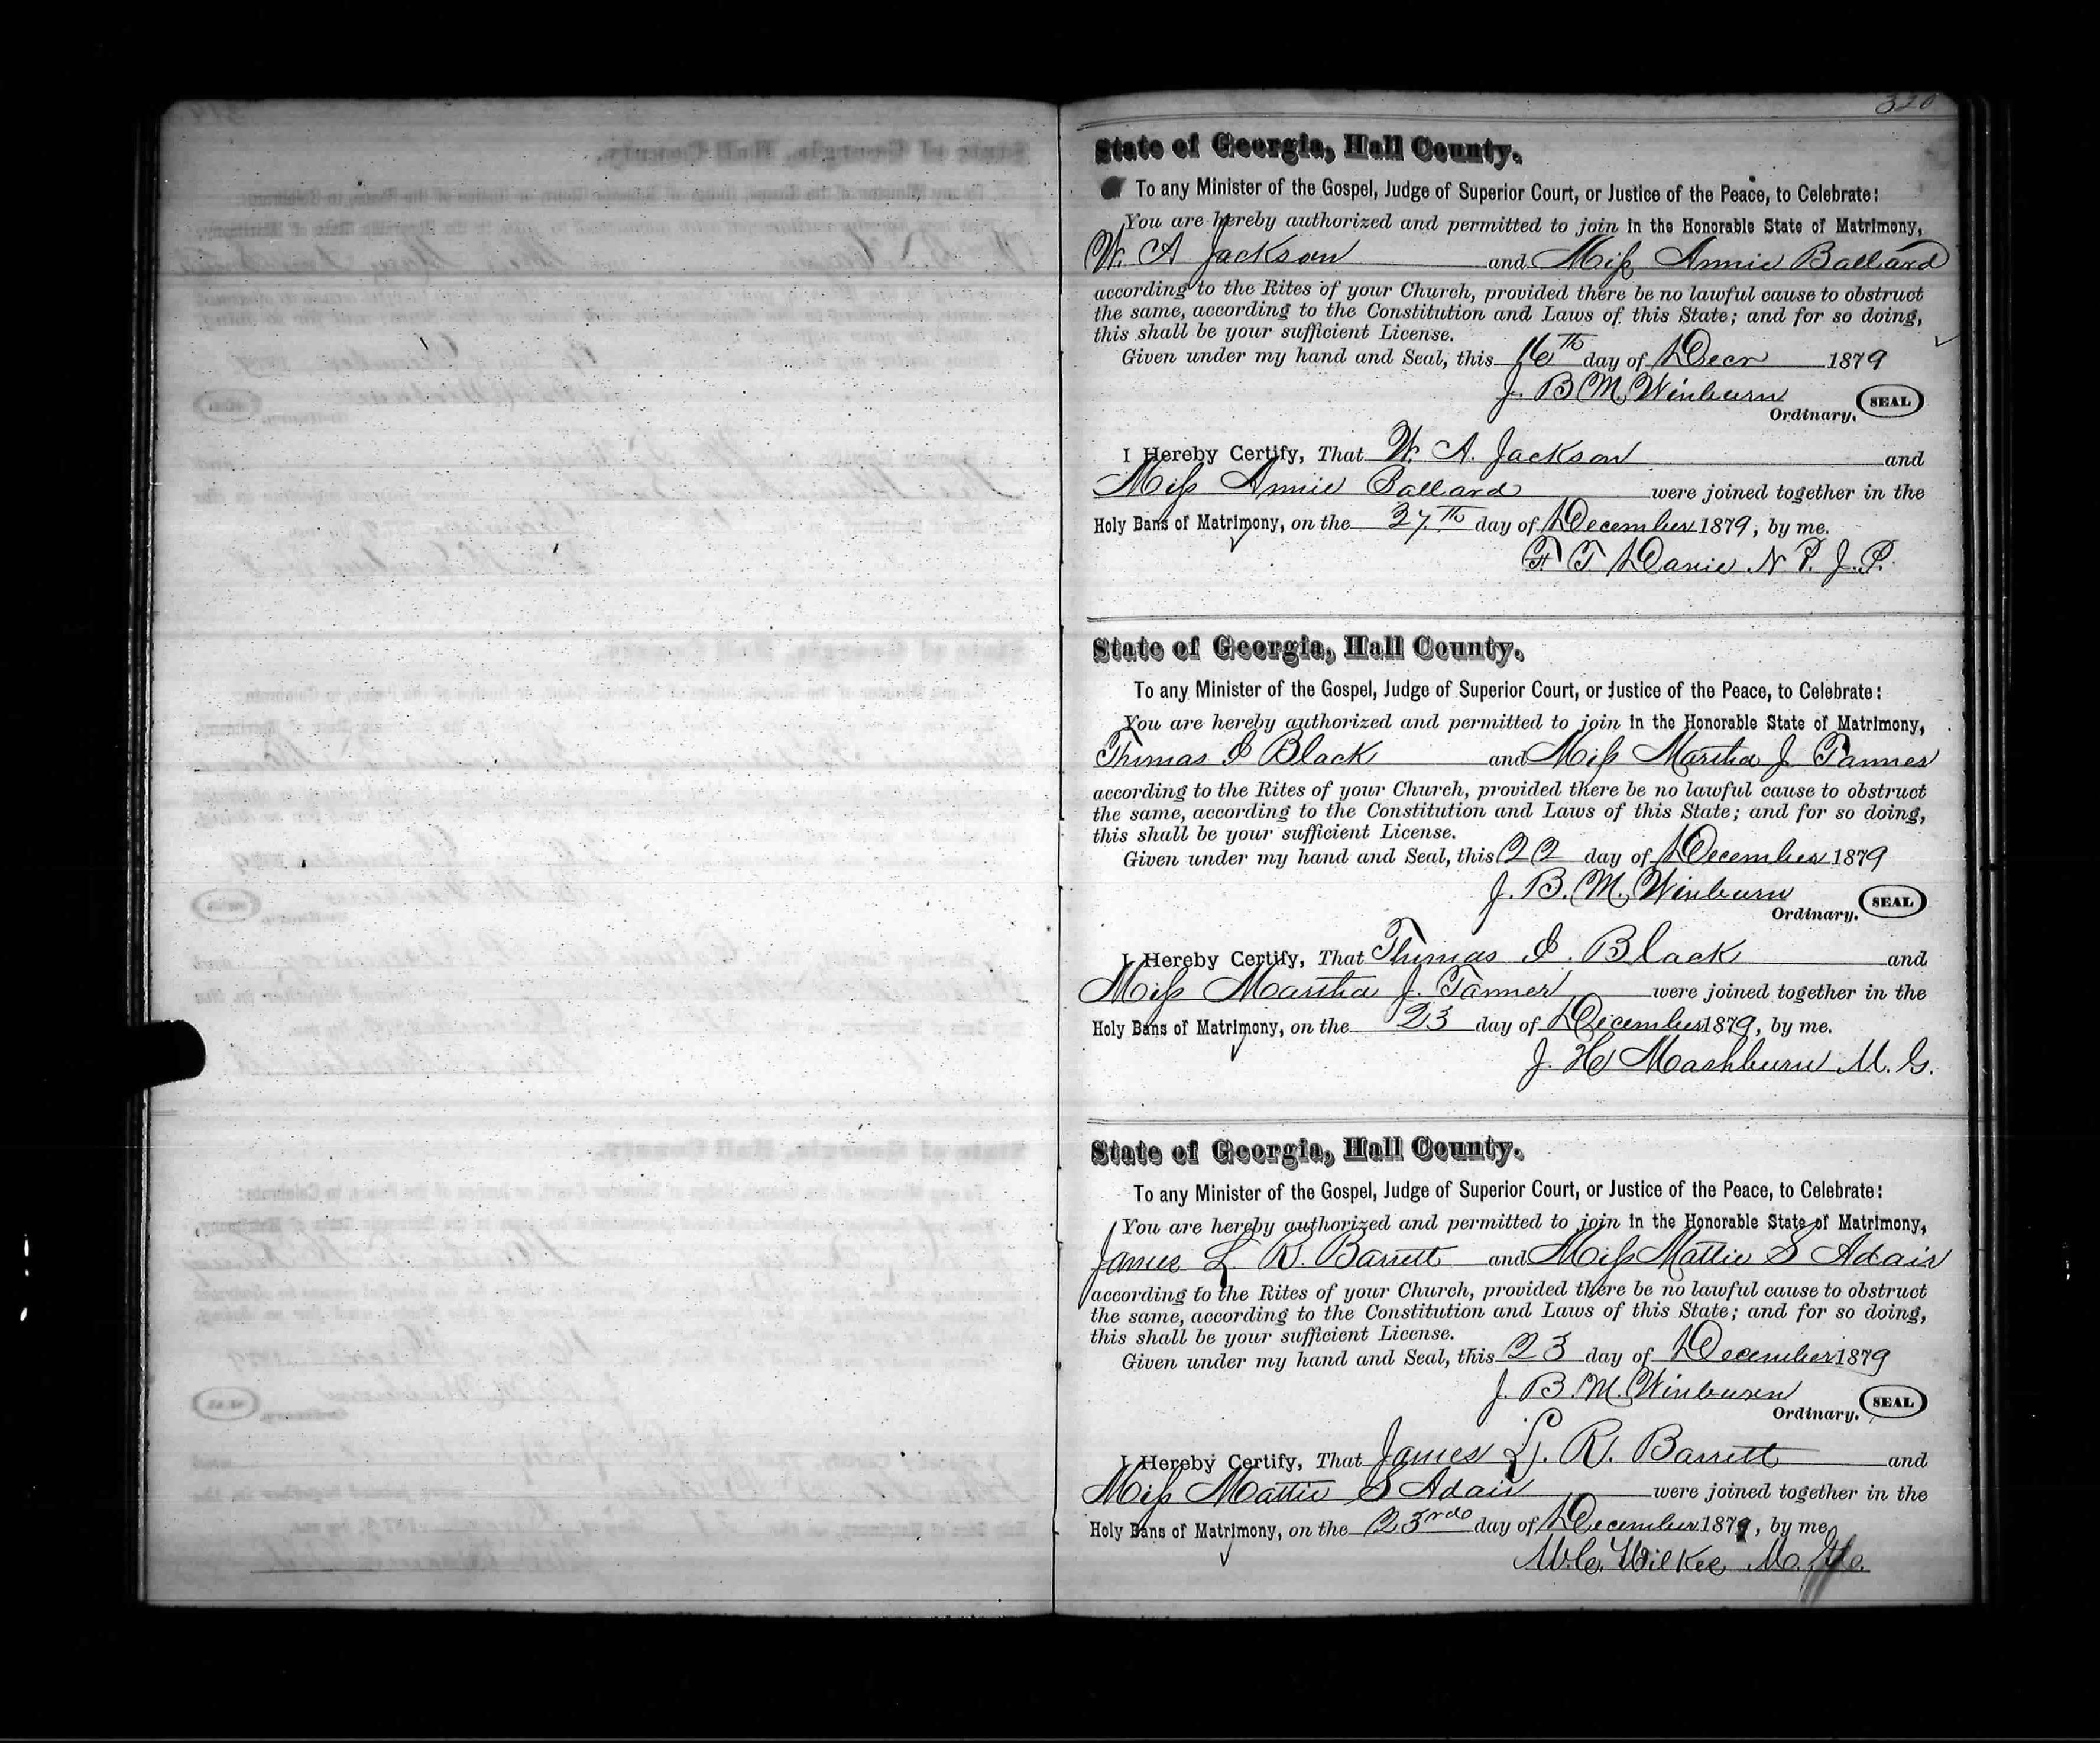 320
State of Georgia, Hall County.
To any Minister of the Gospel, Judge of Superior Court, or Justice of the Peace, to Celebrate:
You are hereby authorized and permitted to join in the Honorable State of Matrimony,
W. A Jackson and Miss Annie Ballard
according to the Rites of your Church, provided there be no lawful cause to obstruct
the same, according to the Constitution and Laws of this State; and for so doing,
this shall be your sufficient License.
Given under my hand and Seal, this 16th day of Decr 1879
J. B. M. Winburn
Ordinary. SEAL
I Hereby Certify, That W. A. Jackson and
Miss Annie Ballard were joined together in the
Holy Bans of Matrimony, on the 27th day of December 1879, by me.
T. N. P. J. P.
State of Georgia, Hall County.
To any Minister of the Gospel, Judge of Superior Court, or Justice of the Peace, to Celebrate:
You are hereby authorized and permitted to join in the Honorable State of Matrimony,
Thomas I Black and Miss Martha J. Tanner
according to the Rites of your Church, provided there be no lawful cause to obstruct
the same, according to the Constitution and Laws of this State; and for so doing,
this shall be your sufficient License.
Given under my hand and Seal, this 22 day of December 1879
J. B. M. Winburn
Ordinary. SEAL
I Hereby Certify, That Thomas I. Black and
Miss Martha J. Tanner were joined together in the
Holy Bans of Matrimony, on the 23 day of December 1879, by me.
J. H Mashburn M. G.
State of Georgia, Hall County.
To any Minister of the Gospel, Judge of Superior Court, or Justice of the Peace, to Celebrate:
You are hereby authorized and permitted to join in the Honorable State of Matrimony,
James L. R. Barrett and Miss Mattie S Adair
according to the Rites of your Church, provided there be no lawful cause to obstruct
the same, according to the Constitution and Laws of this State; and for so doing,
this shall be your sufficient License.
Given under my hand and Seal, this 23 day of December 1879
J. B. M. Winburn
Ordinary. SEAL
I Hereby Certify, That James L. R. Barrett and
Miss Mattie S Adair were joined together in the
Holy Bans of Matrimony, on the 23rd day of December 1879, by me
W. C. Wilkes M. G.